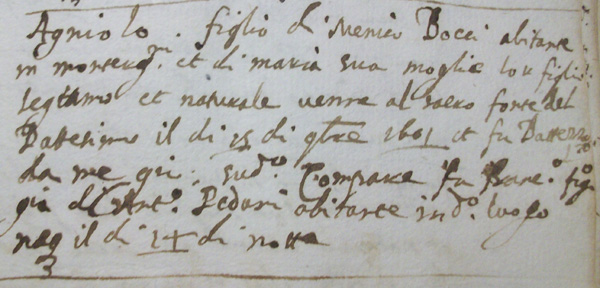 Agniolo . figlio di Menico Bocci abitante
in monterg.ni et di maria sua moglie lor figlio
legitimo et naturale venne al sacro fonte del
Battesimo il di 15 di 9bre 1601 et fu Battezzato
da me gio: sud.o Compare fu Franc.o
di Ant.o Pedani abitante in d.o luogo
naq il di 14 di notte